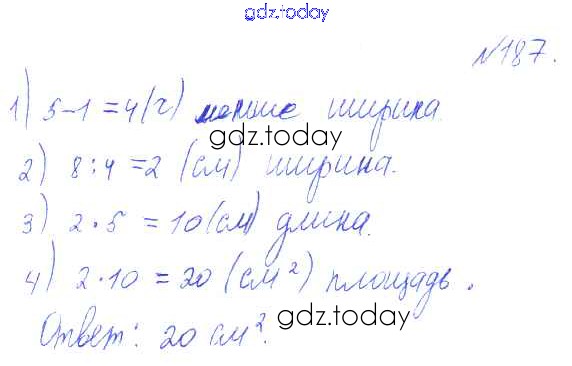 gdz.today
№187.
1) 5-1=4(г) меньше ширина
gdz.today
2) 8:4=2 (см) ширина.
3) 2·5=10(см) длина.
4) 2·10=20 (см²) площадь.
Ответ: 20 см².
gdz.today